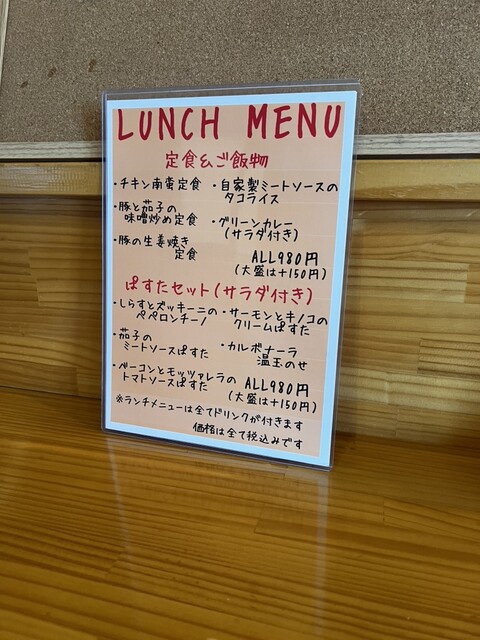 LUNCH MENU
定食&ご飯物
・チキン南蛮定食
・豚と茄子の
味噌炒め定食
・豚の生姜焼き
定食
・自家製ミートソースの
タコライス
・グリーンカレー
(サラダ付き)
ALL980円
(大盛は+150円)
ぱすたセット(サラダ付き)
・しらすとズッキーニの
ペペロンチーノ
・サーモンとキノコの
クリームぱすた
・茄子の
ミートソースぱすた
・カルボナーラ
温玉のせ
・ベーコンとモッツァレラの
トマトソースぱすた
ALL980円
(大盛は+150円)
※ランチメニューは全てドリンクが付きます
価格は全て税込みです